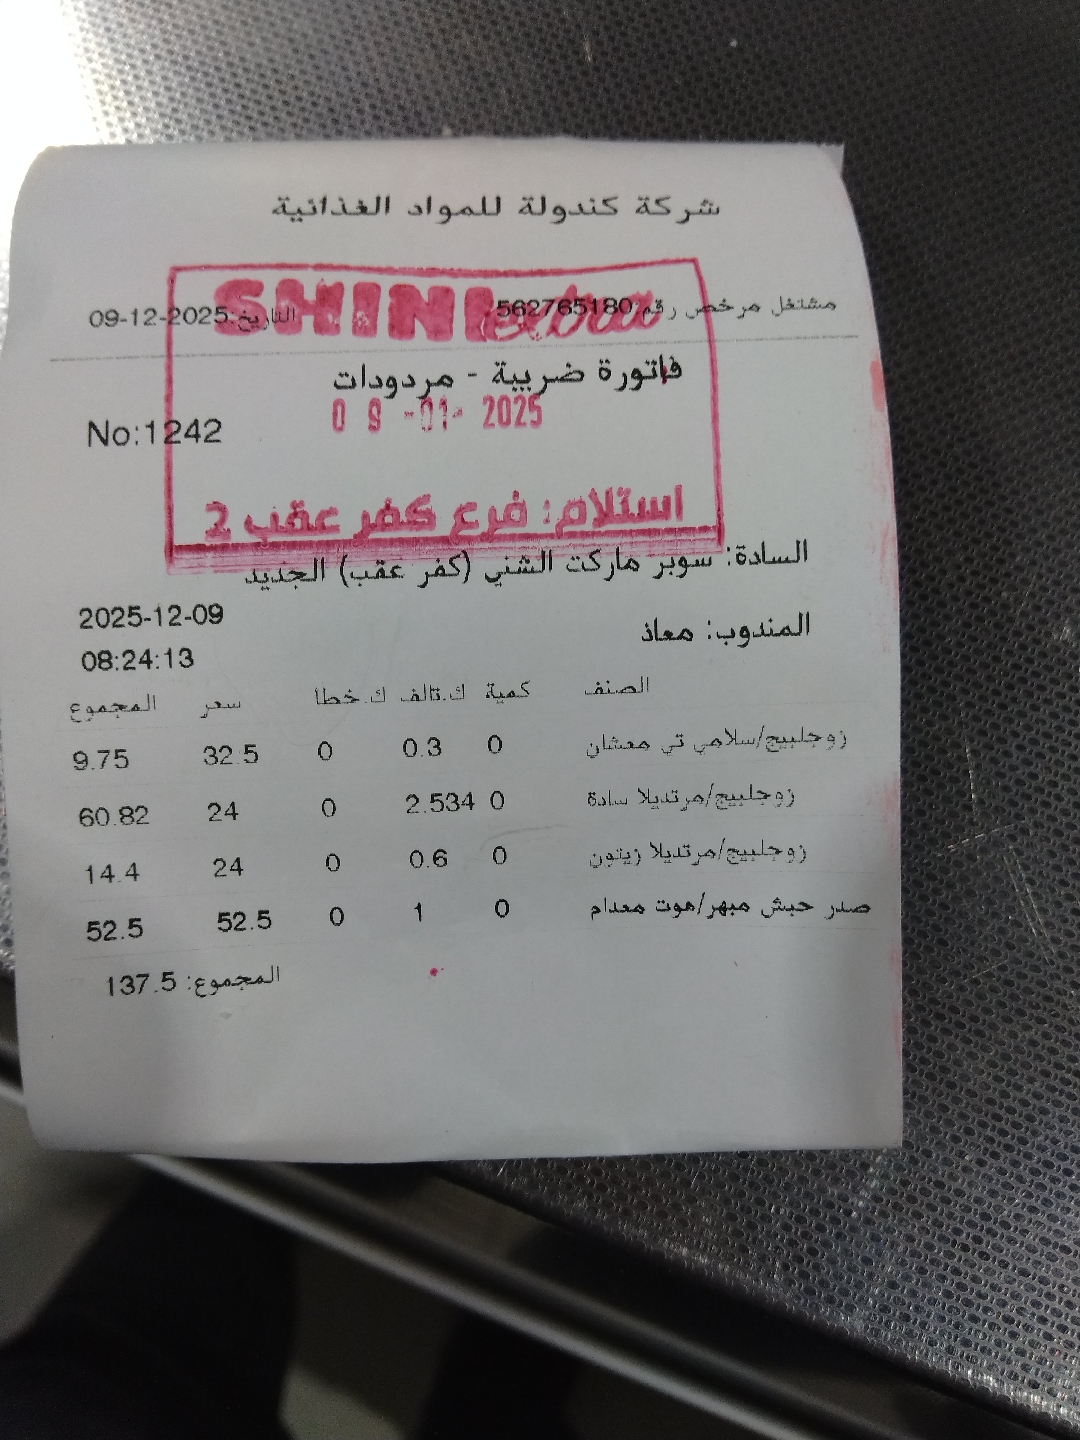 شركة كندولة للمواد الغذائية
SHINI extra
مشتغل مرخص رقم:562765180 التاريخ:09-12-2025
فاتورة ضريبة - مردودات
09 -01- 2025
No:1242
استلام: فرع كفر عقب 2
السادة: سوبر ماركت الشني (كفر عقب) الجديد
2025-12-09
المندوب: معاذ
08:24:13
الصنف كمية ك.تالف ك.خطا سعر المجموع
زوجلبيج/سلامي تي معشان 0 0.3 0 32.5 9.75
زوجلبيج/مرتديلا سادة 0 2.534 0 24 60.82
زوجلبيج/مرتديلا زيتون 0 0.6 0 24 14.4
صدر حبش مبهر/هوت معدام 0 1 0 52.5 52.5
المجموع: 137.5